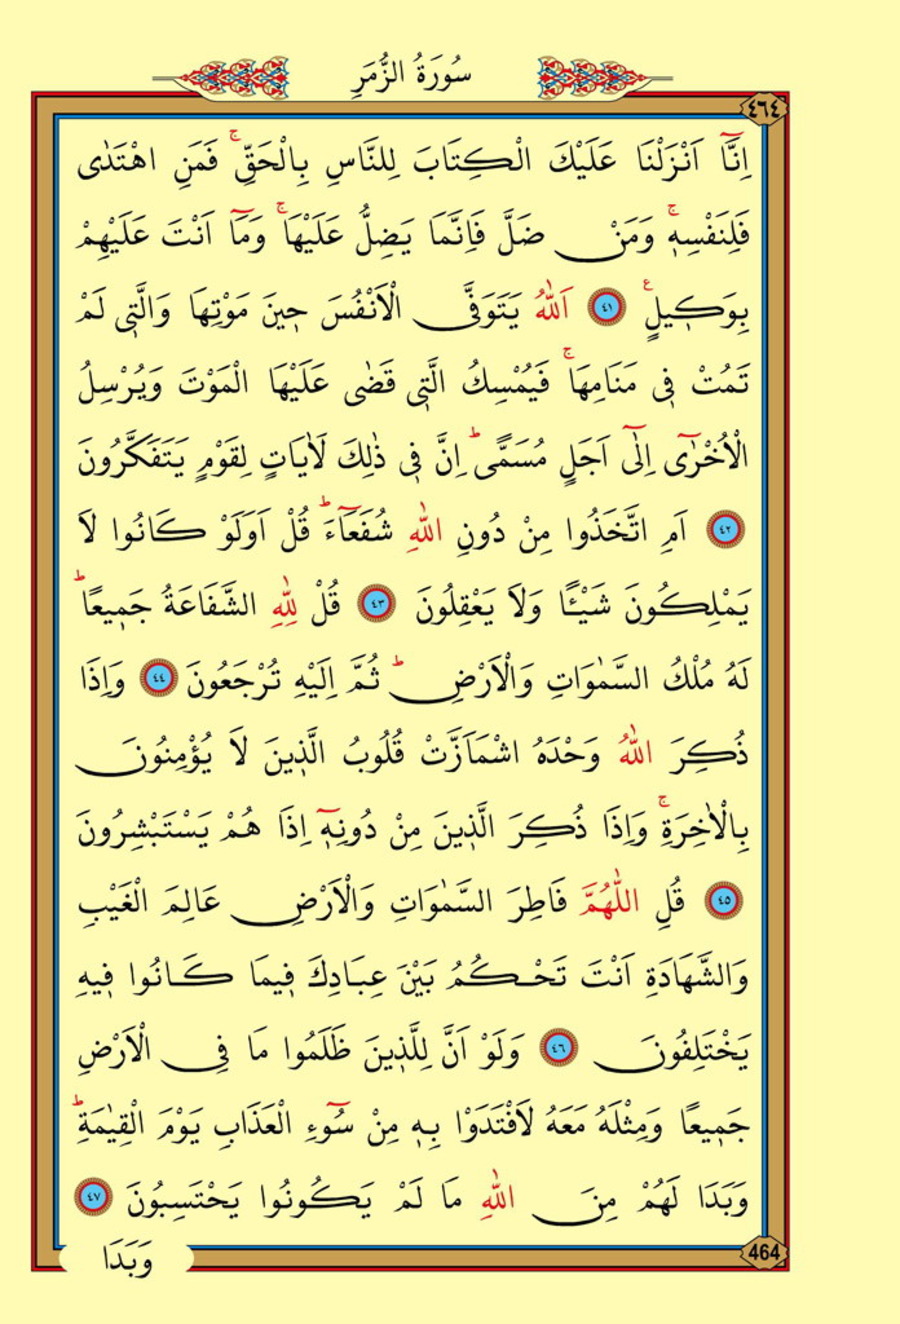 سُورَةُ الزُّمَرِ
٤٦٤
اِنَّٓا اَنْزَلْنَا عَلَيْكَ الْكِتَابَ لِلنَّاسِ بِالْحَقِّۚ فَمَنِ اهْتَدٰى
فَلِنَفْسِه۪ۚ وَمَنْ ضَلَّ فَاِنَّمَا يَضِلُّ عَلَيْهَاۚ وَمَٓا اَنْتَ عَلَيْهِمْ
بِوَك۪يلٍ۟ ﴿٤١﴾ اَللّٰهُ يَتَوَفَّى الْاَنْفُسَ ح۪ينَ مَوْتِهَا وَالَّت۪ي لَمْ
تَمُتْ ف۪ي مَنَامِهَاۚ فَيُمْسِكُ الَّت۪ي قَضٰى عَلَيْهَا الْمَوْتَ وَيُرْسِلُ
الْاُخْرٰٓى اِلٰٓى اَجَلٍ مُسَمًّىۜ اِنَّ ف۪ي ذٰلِكَ لَاٰيَاتٍ لِقَوْمٍ يَتَفَكَّرُونَ
﴿٤٢﴾ اَمِ اتَّخَذُوا مِنْ دُونِ اللّٰهِ شُفَعَٓاءَۜ قُلْ اَوَلَوْ كَانُوا لَا
يَمْلِكُونَ شَيْـًٔا وَلَا يَعْقِلُونَ ﴿٤٣﴾ قُلْ لِلّٰهِ الشَّفَاعَةُ جَم۪يعًاۜ
لَهُ مُلْكُ السَّمٰوَاتِ وَالْاَرْضِۜ ثُمَّ اِلَيْهِ تُرْجَعُونَ ﴿٤٤﴾ وَاِذَا
ذُكِرَ اللّٰهُ وَحْدَهُ اشْمَاَزَّتْ قُلُوبُ الَّذ۪ينَ لَا يُؤْمِنُونَ
بِالْاٰخِرَةِۚ وَاِذَا ذُكِرَ الَّذ۪ينَ مِنْ دُونِه۪ٓ اِذَا هُمْ يَسْتَبْشِرُونَ
﴿٤٥﴾ قُلِ اللّٰهُمَّ فَاطِرَ السَّمٰوَاتِ وَالْاَرْضِ عَالِمَ الْغَيْبِ
وَالشَّهَادَةِ اَنْتَ تَحْكُمُ بَيْنَ عِبَادِكَ ف۪يمَا كَانُوا ف۪يهِ
يَخْتَلِفُونَ ﴿٤٦﴾ وَلَوْ اَنَّ لِلَّذ۪ينَ ظَلَمُوا مَا فِي الْاَرْضِ
جَم۪يعًا وَمِثْلَهُ مَعَهُ لَافْتَدَوْا بِه۪ مِنْ سُٓوءِ الْعَذَابِ يَوْمَ الْقِيٰمَةِۜ
وَبَدَا لَهُمْ مِنَ اللّٰهِ مَا لَمْ يَكُونُوا يَحْتَسِبُونَ ﴿٤٧﴾
464
وَبَدَا